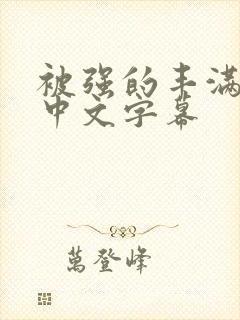 被强的丰满
中文字幕
萬登峰